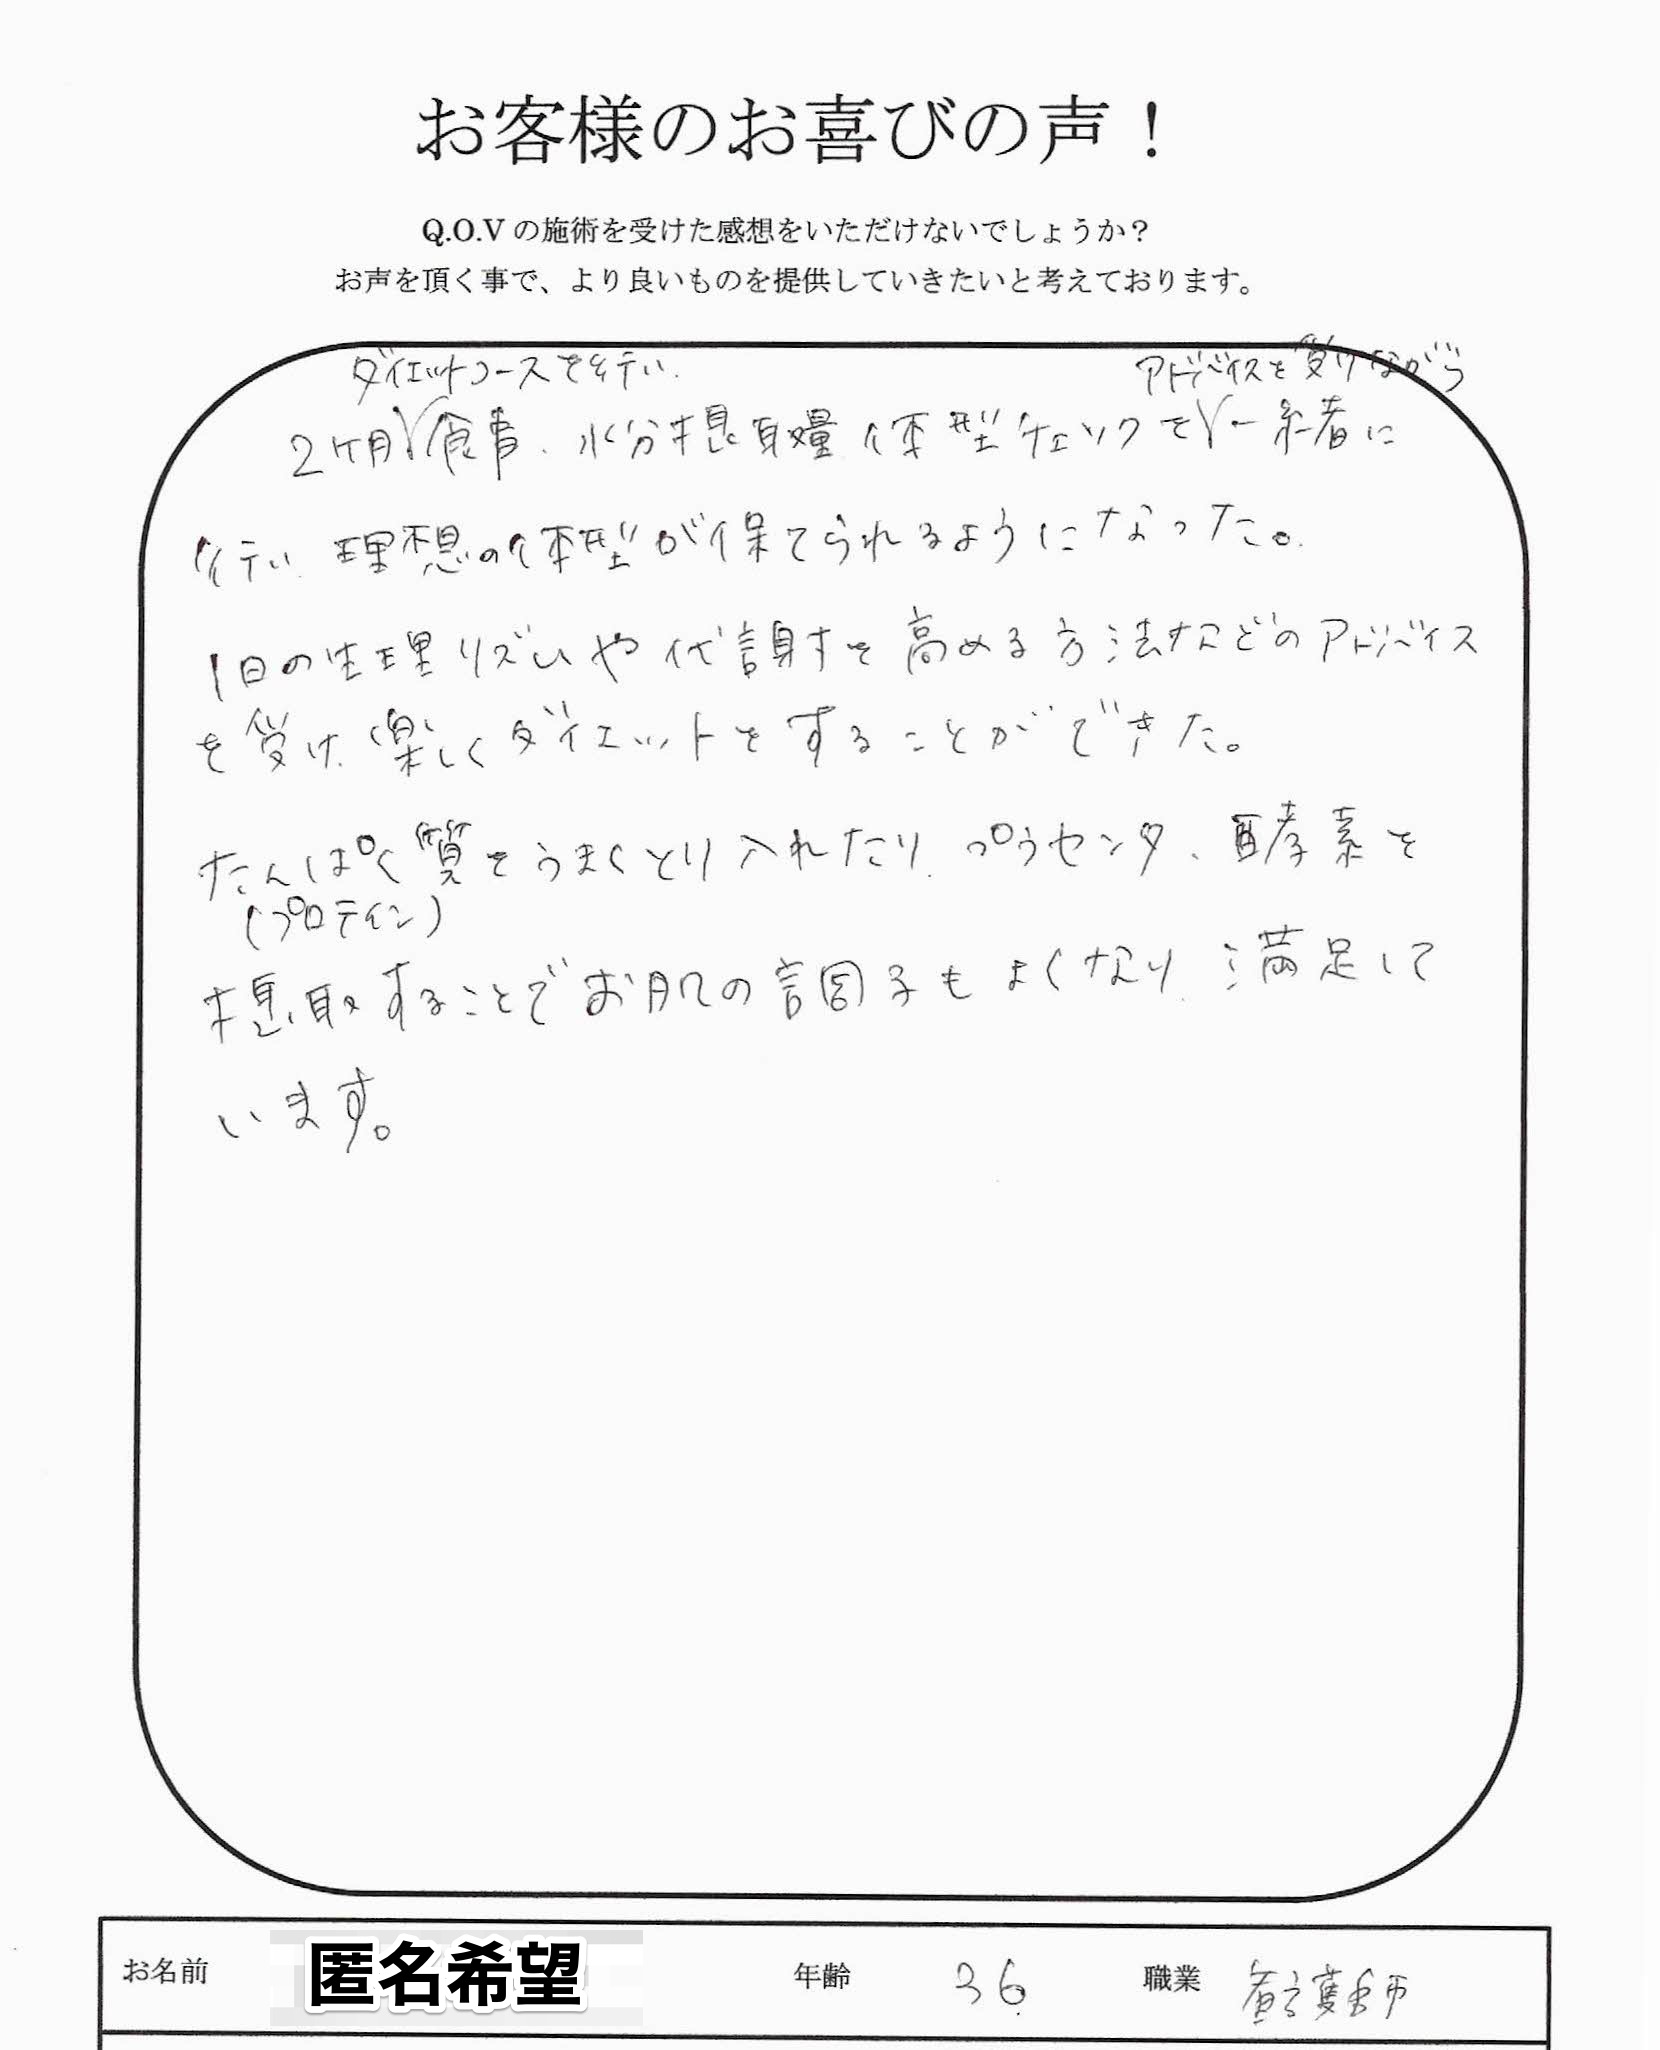 お客様のお喜びの声！
Q.O.Vの施術を受けた感想をいただけないでしょうか？
お声を頂く事で、より良いものを提供していきたいと考えております。
ダイエットコースを行い、 アドバイスを受けながら
2ヶ月 食事、水分摂取量、体型チェックを 一緒に
行い、理想の体型が保てられるようになった。
1日の生理リズムや代謝を高める方法などのアドバイス
を受け、楽しくダイエットをすることができた。
たんぱく質をうまくとり入れたり、プラセンタ、酵素を
(プロテイン)
摂取することでお肌の調子もよくなり、満足して
います。
お名前 匿名希望 年齢 36 職業 看護師